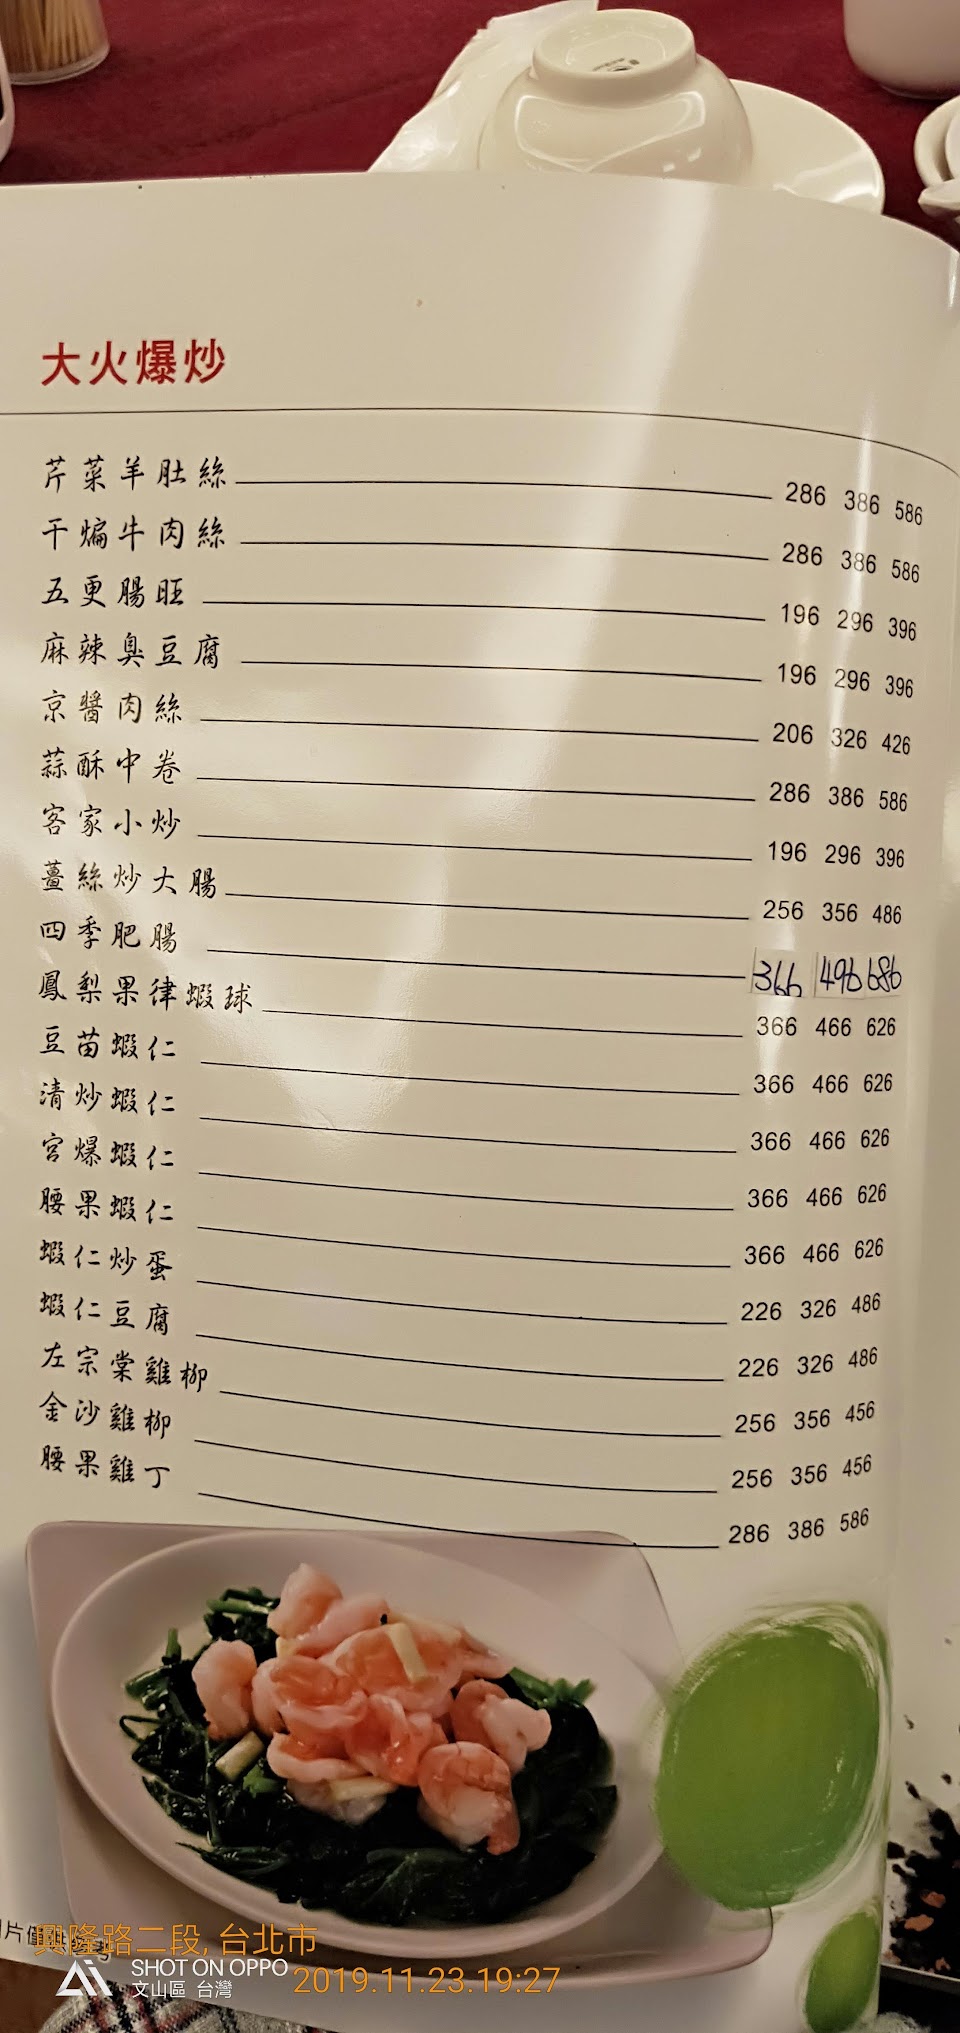 大火爆炒
芹菜羊肚絲 286 386 586
干煸牛肉絲 286 386 586
五更腸旺 196 296 396
麻辣臭豆腐 196 296 396
京醬肉絲 206 326 426
蒜酥中卷 286 386 586
客家小炒 196 296 396
薑絲炒大腸 256 356 486
四季肥腸 366 496 686
鳳梨果律蝦球 366 466 626
豆苗蝦仁 366 466 626
清炒蝦仁 366 466 626
宮爆蝦仁 366 466 626
腰果蝦仁 366 466 626
蝦仁炒蛋 226 326 486
蝦仁豆腐 226 326 486
左宗棠雞柳 256 356 456
金沙雞柳 256 356 456
腰果雞丁 286 386 586
興隆路二段, 台北市
SHOT ON OPPO
文山區 台灣
2019.11.23.19:27